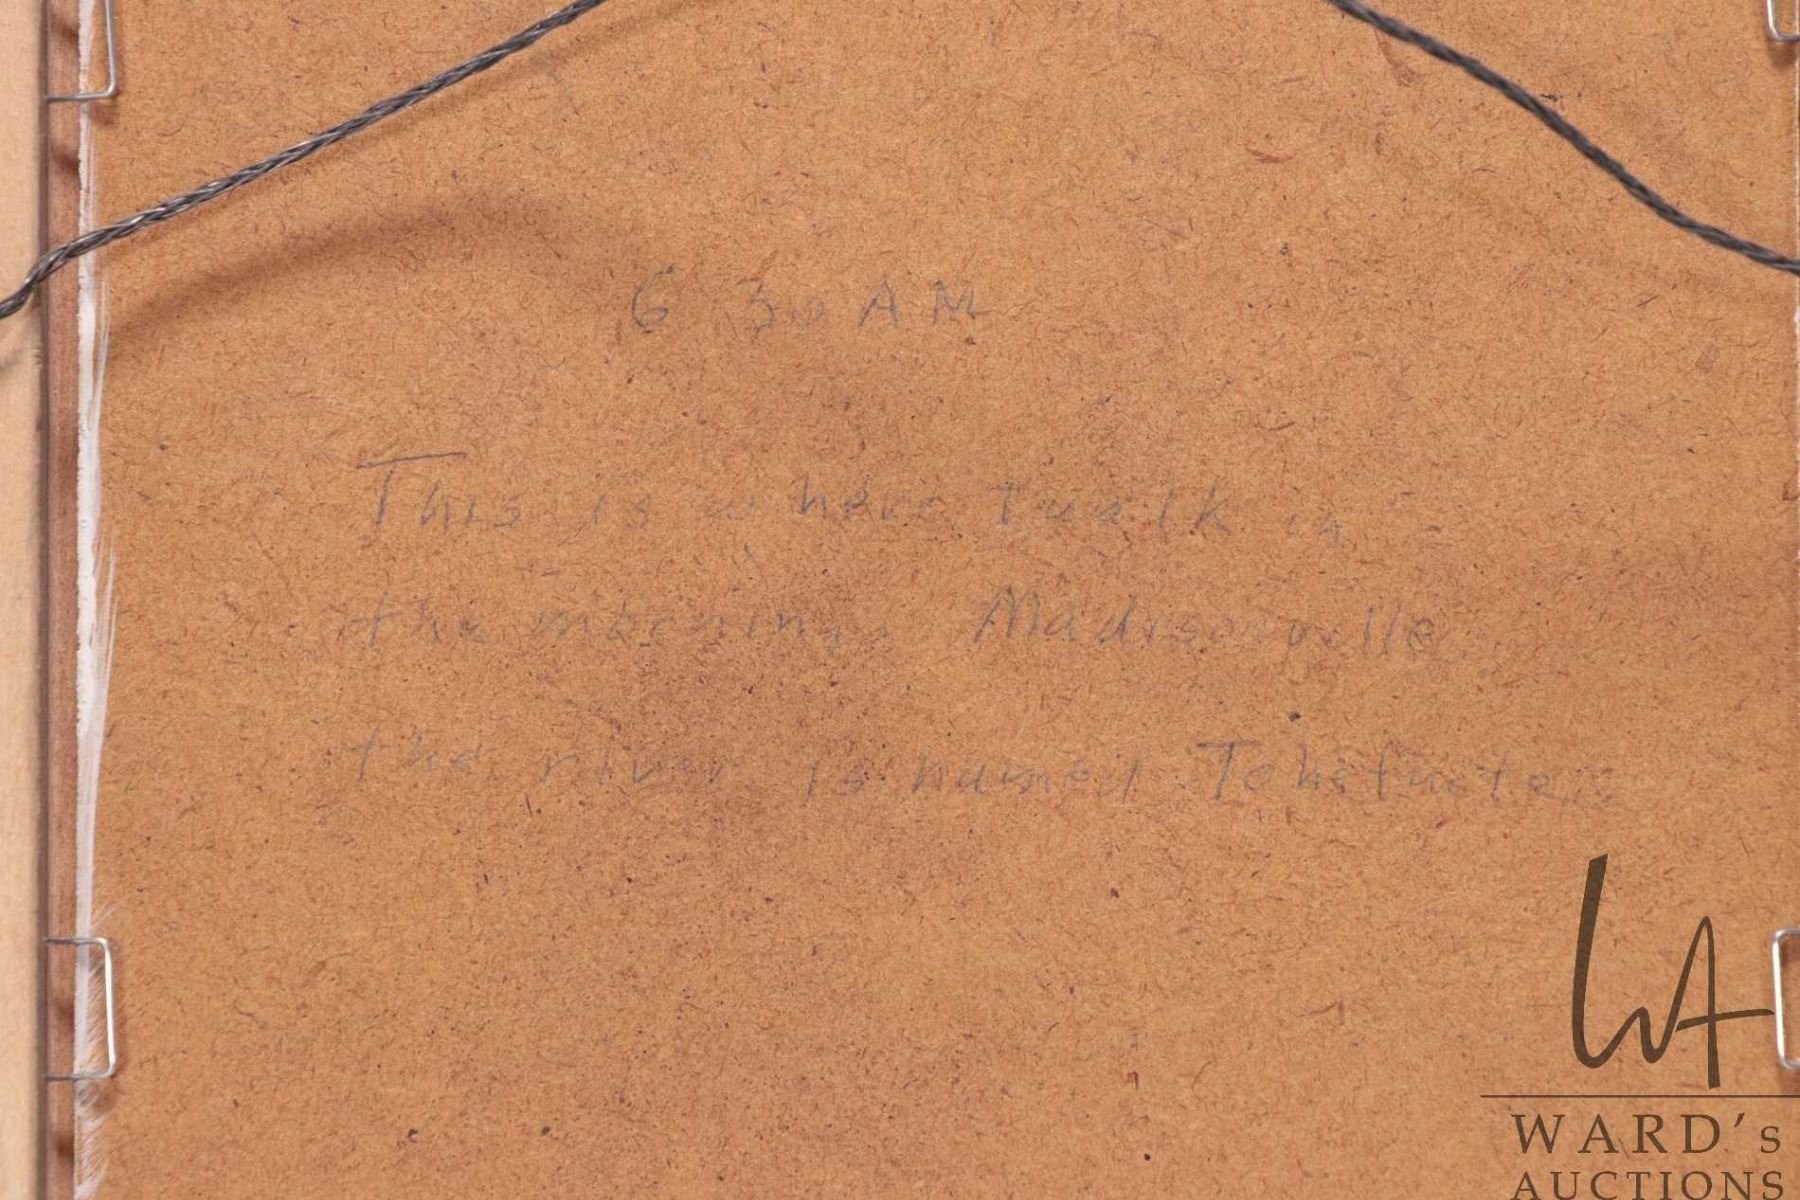 6 30 AM
This is where I walk in
the morning. Madisonville
the river is named Tchefuncte
WARD's
AUCTIONS